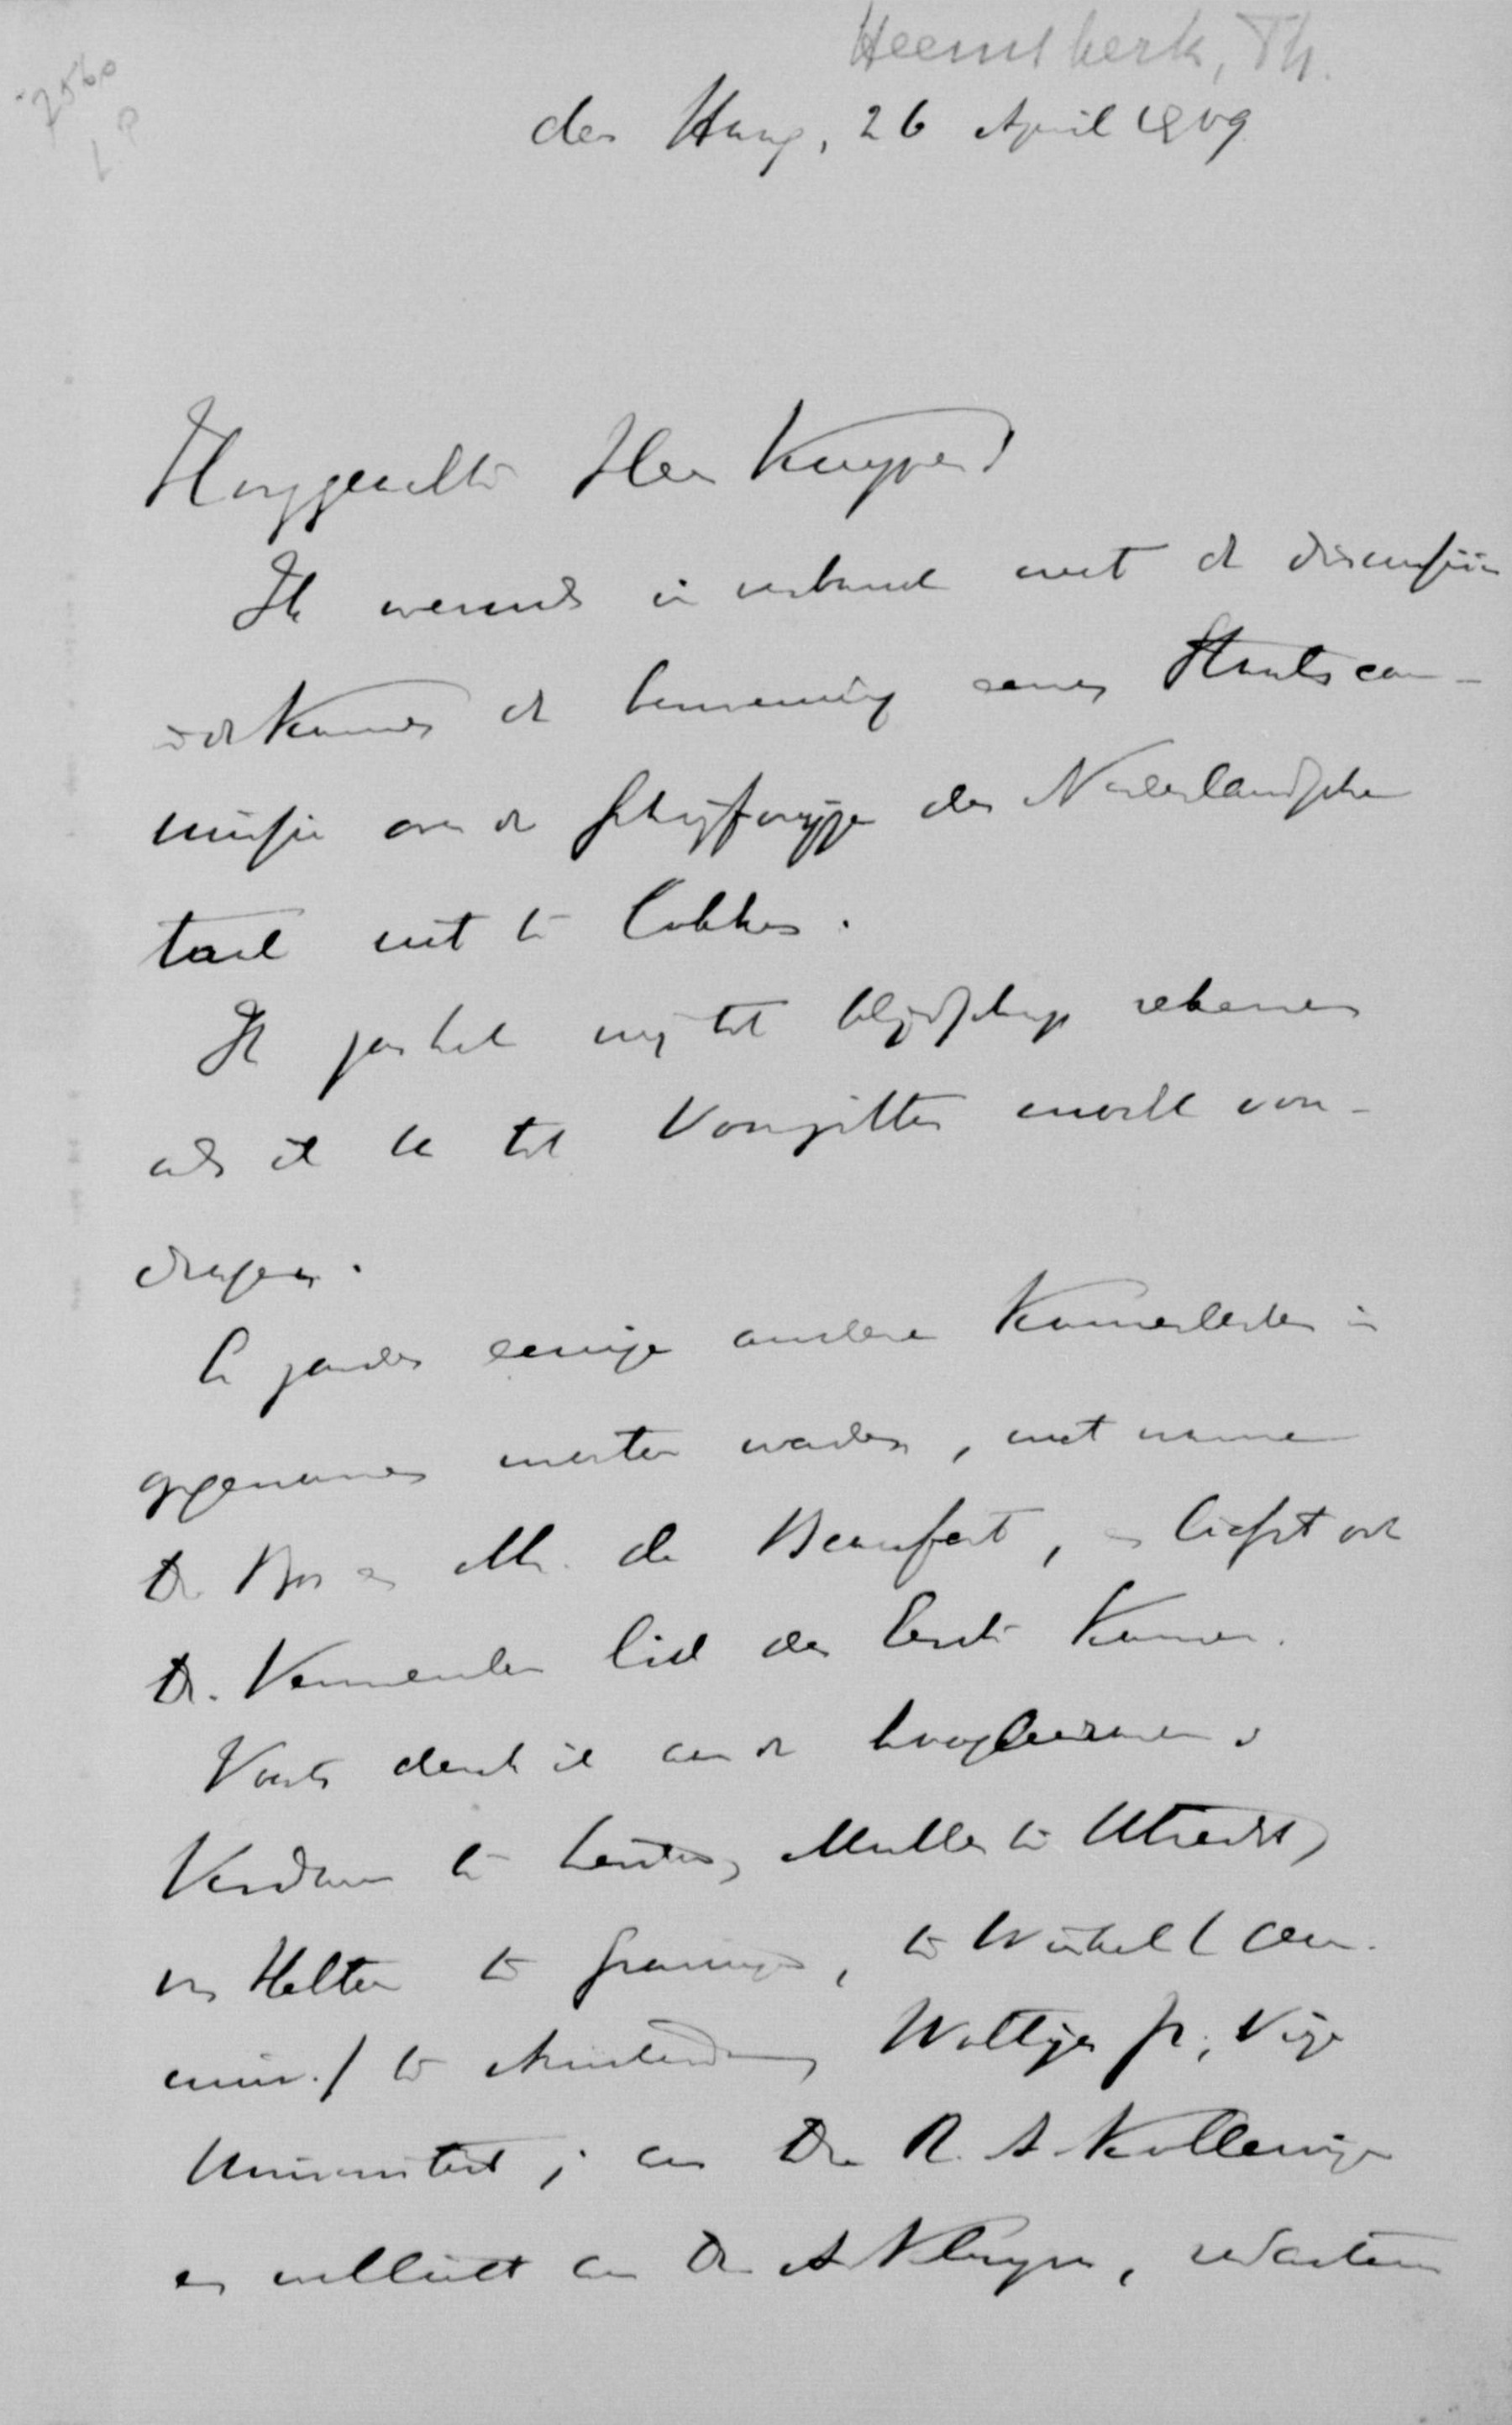 7560
Heemskerk, Th.
den Haag, 26 April 1909
Hooggeachte Heer Kuyper!
Ik wensch in verband met de discussiën
in de Kamer de benoeming eener Staatscom-
missie over de schrijfwijze der Nederlandsche
taal uit te lokken.
Ik zou het mij tot blijdschap rekenen
als ik U tot Voorzitter mocht voor-
dragen.
Er zouden eenige andere Kamerleden in
opgenomen moeten worden, met name
Dr. Bos en Mr. de Beaufort, en liefst ook
Dr. Vermeulen lid der Eerste Kamer.
Voorts denk ik aan de hoogleeraren
Verdam te Leiden, Muller te Utrecht,
van Helten te Groningen, te Winkel (Gem.
univ.) te Amsterdam, Woltjer Jr., Vrije
Universiteit; aan Dr. R. A. Kollewijn
en wellicht aan Dr. A. Kluyver, redacteur